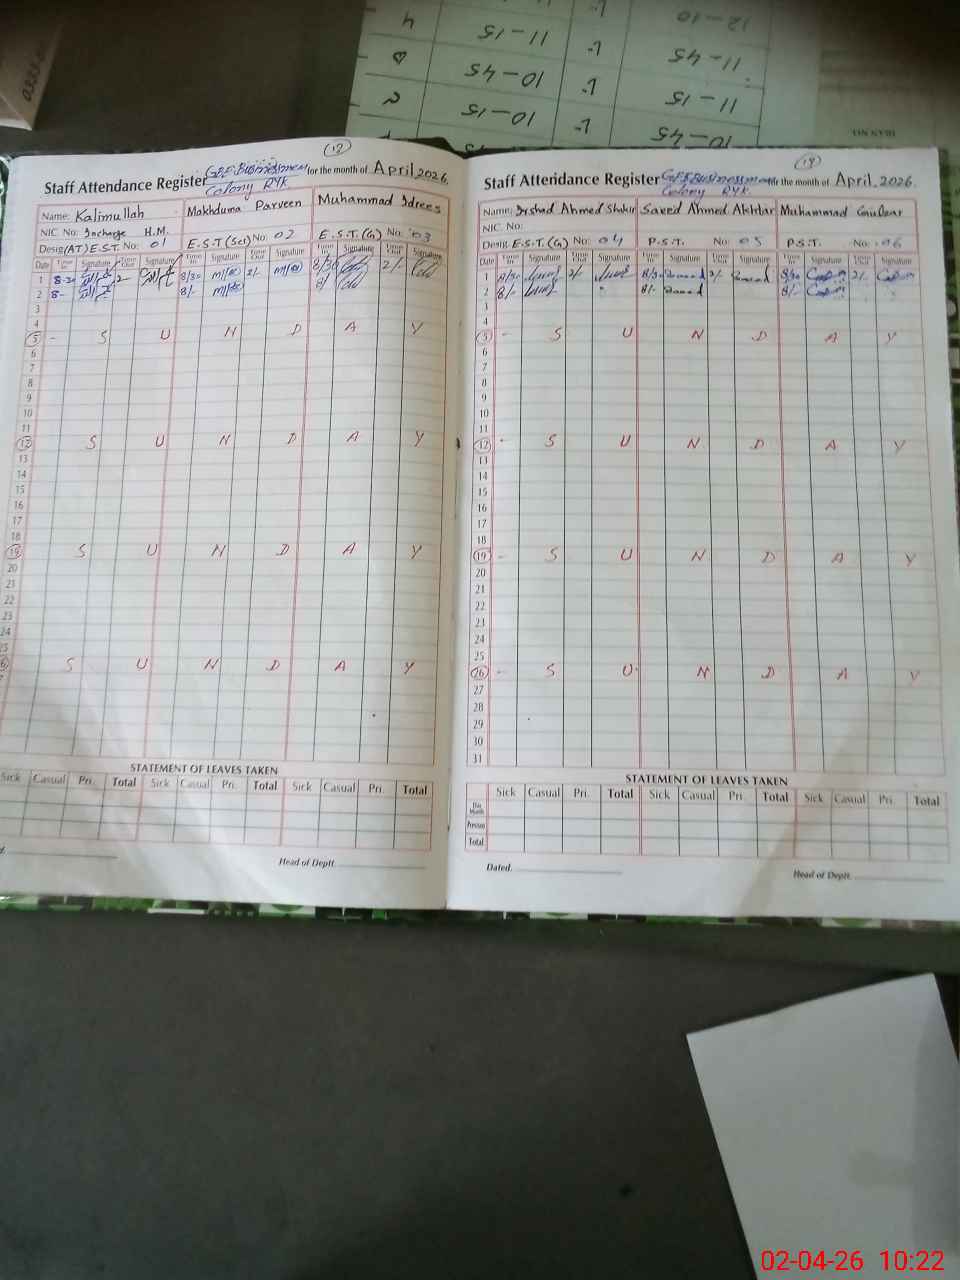 12-10
11-15
4
11-45
10-45
11-15
10-15
10-45
(17)
Staff Attendance Register for the month of April, 2026.
Colony RYK
Name: Kalimullah
Makhduma Parveen
Muhammad Idrees
NIC. No: Incharge H.M.
Desig: (AT) E.S.T. No: 01
E.S.T (Sci) No: 02
E.S.T. (G) No: 03
Date Time In Signature Time Out Signature Time In Signature Time Out Signature Time In Signature Time Out Signature
1 8-30 2- 8/30 2/- 8/30 2/-
2 8- 8/- 8/
3
4
5 - S U N D A Y
6
7
8
9
10
11
12 S U N D A Y
13
14
15
16
17
18
19 S U N D A Y
20
21
22
23
24
25
26 S U N D A Y
STATEMENT OF LEAVES TAKEN
Sick Casual Pri. Total Sick Casual Pri. Total Sick Casual Pri. Total
Head of Deptt.
(18)
Staff Attendance Register for the month of April, 2026.
Colony RYK
Name: Irshad Ahmed Shakir
Saeed Ahmed Akhtar
Muhammad Gulzar
NIC. No:
Desig: E.S.T. (G) No: 04
P.S.T. No: 05
P.S.T. No: 06
Time In Signature Time Out Signature Time In Signature Time Out Signature Time In Signature Time Out Signature
1 8/30 2/- 8/30 2/- 8/30 2/-
2 8/- 8/- 8/-
3
4
5 - S U N D A Y
6
7
8
9
10
11
12 - S U N D A Y
13
14
15
16
17
18
19 - S U N D A Y
20
21
22
23
24
25
26 - S U N D A Y
27
28
29
30
31
STATEMENT OF LEAVES TAKEN
Sick Casual Pri. Total Sick Casual Pri. Total Sick Casual Pri. Total
This Month
Previous
Total
Dated.
Head of Deptt.
02-04-26 10:22